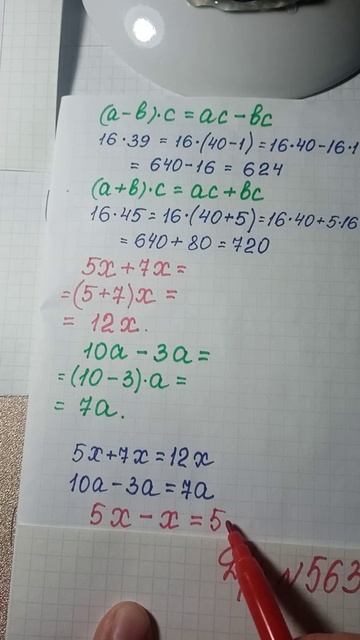 (a-в)·c = ac-вc
16·39 = 16·(40-1)=16·40-16·1
= 640-16 = 624
(a+в)·c = ac+вc
16·45 = 16·(40+5)=16·40+5·16
= 640+80 = 720
5x+7x =
=(5+7)x =
= 12x.
10a-3a =
= (10-3)·a =
= 7a.
5x+7x = 12x
10a-3a = 7a
5x-x = 5
№563